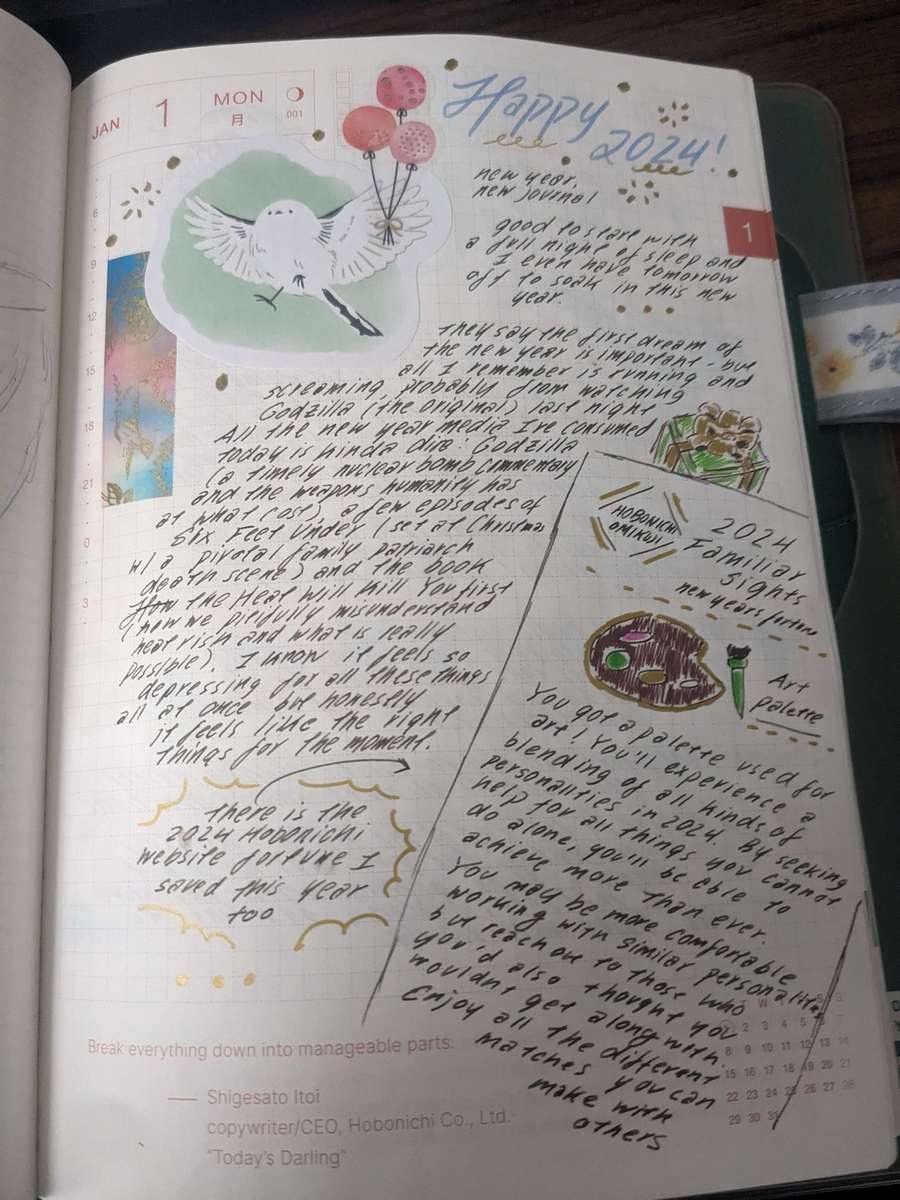 JAN 1 MON
月 001
Happy
2024!
new year,
new journal
good to start with
a full night of sleep and
I even have tomorrow
off to soak in this new
year.
They say the first dream of
the new year is important - but
all I remember is running and
screaming, probably from watching
Godzilla (the original) last night
All the new year media I've consumed
today is kinda dire: Godzilla
(a timely nuclear bomb commentary
and the weapons humanity has
at what cost), a few episodes of
Six Feet Under (set at Christmas
w/ a pivotal family patriarch
death scene) and the book
How the Heat Will Kill You first
(how we pitifully misunderstand
heat rish and what is really
possible). I know it feels so
depressing for all these things
all at once but honestly
it feels like the right
things for the moment.
there is the
2024 Hobonichi
website fortune I
saved this year
too
1
6
9
12
15
18
21
0
3
HOBONICHI
OMIKUJI
2024
Familiar
Sights
new years fortune
Art
palette
You got a palette used for
art! You'll experience a
blending of all kinds of
personalities in 2024. By seeking
help for all things you cannot
do alone, you'll be able to
achieve more than ever.
You may be more comfortable
working with similar personalities
but reach out to those who
you'd also thought you
wouldn't get along with.
Enjoy all the different
matches you can
make with
others
Break everything down into manageable parts.
— Shigesato Itoi
copywriter/CEO, Hobonichi Co., Ltd.
"Today's Darling"
T W S S
2 3 4 5 6 7
8 9 10 11 12 13 14
15 16 17 18 19 20 21
22 23 24 25 26 27 28
29 30 31